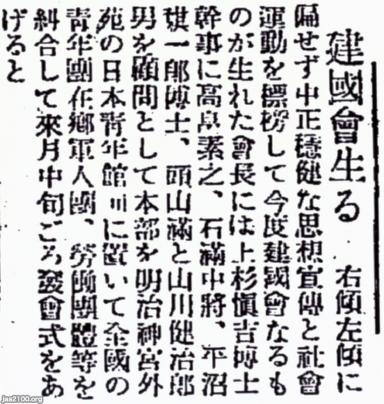 建國會生る　右傾左傾に
偏せず中正穩健な思想宣傳と社會
運動を標榜して今度建國會なるも
のが生れた會長には上杉愼吉博士
幹事に高畠素之、石滿中將、平沼
騏一郎博士、頭山滿と山川健治郎
男を顧問として本部を明治神宮外
苑の日本青年館川に置いて全國の
青年團在鄕軍人團、勞働團體等を
糾合して來月中旬ごろ發會式をあ
げると
jaa2100.org